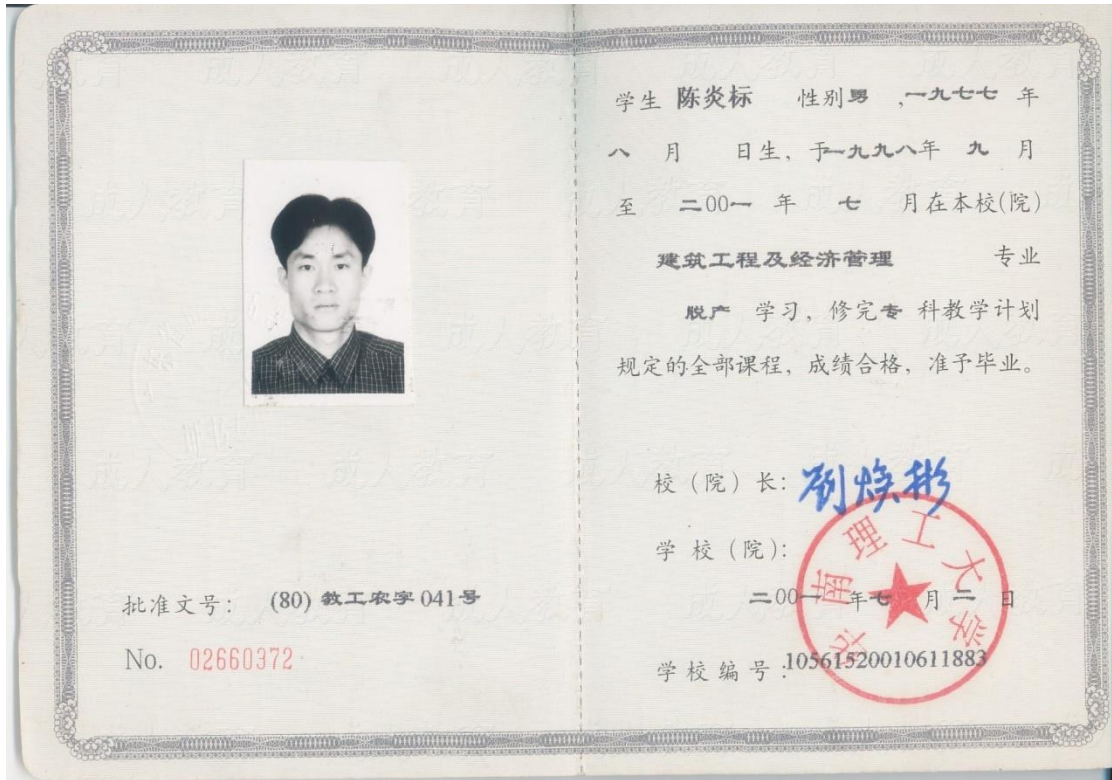 批准文号: (80) 教工农字 041号
No. 02660372
学生 陈炎标 性别男 ,一九七七 年
八 月 日生, 于一九九八年 九 月
至 二00一 年 七 月在本校(院)
建筑工程及经济管理 专业
脱产 学习, 修完专 科教学计划
规定的全部课程, 成绩合格, 准予毕业。
校 (院) 长: 刘焕彬
学 校 (院):
华南理工大学
二00一 年七 月 二 日
学 校 编 号 :10561520010611883
成人教育